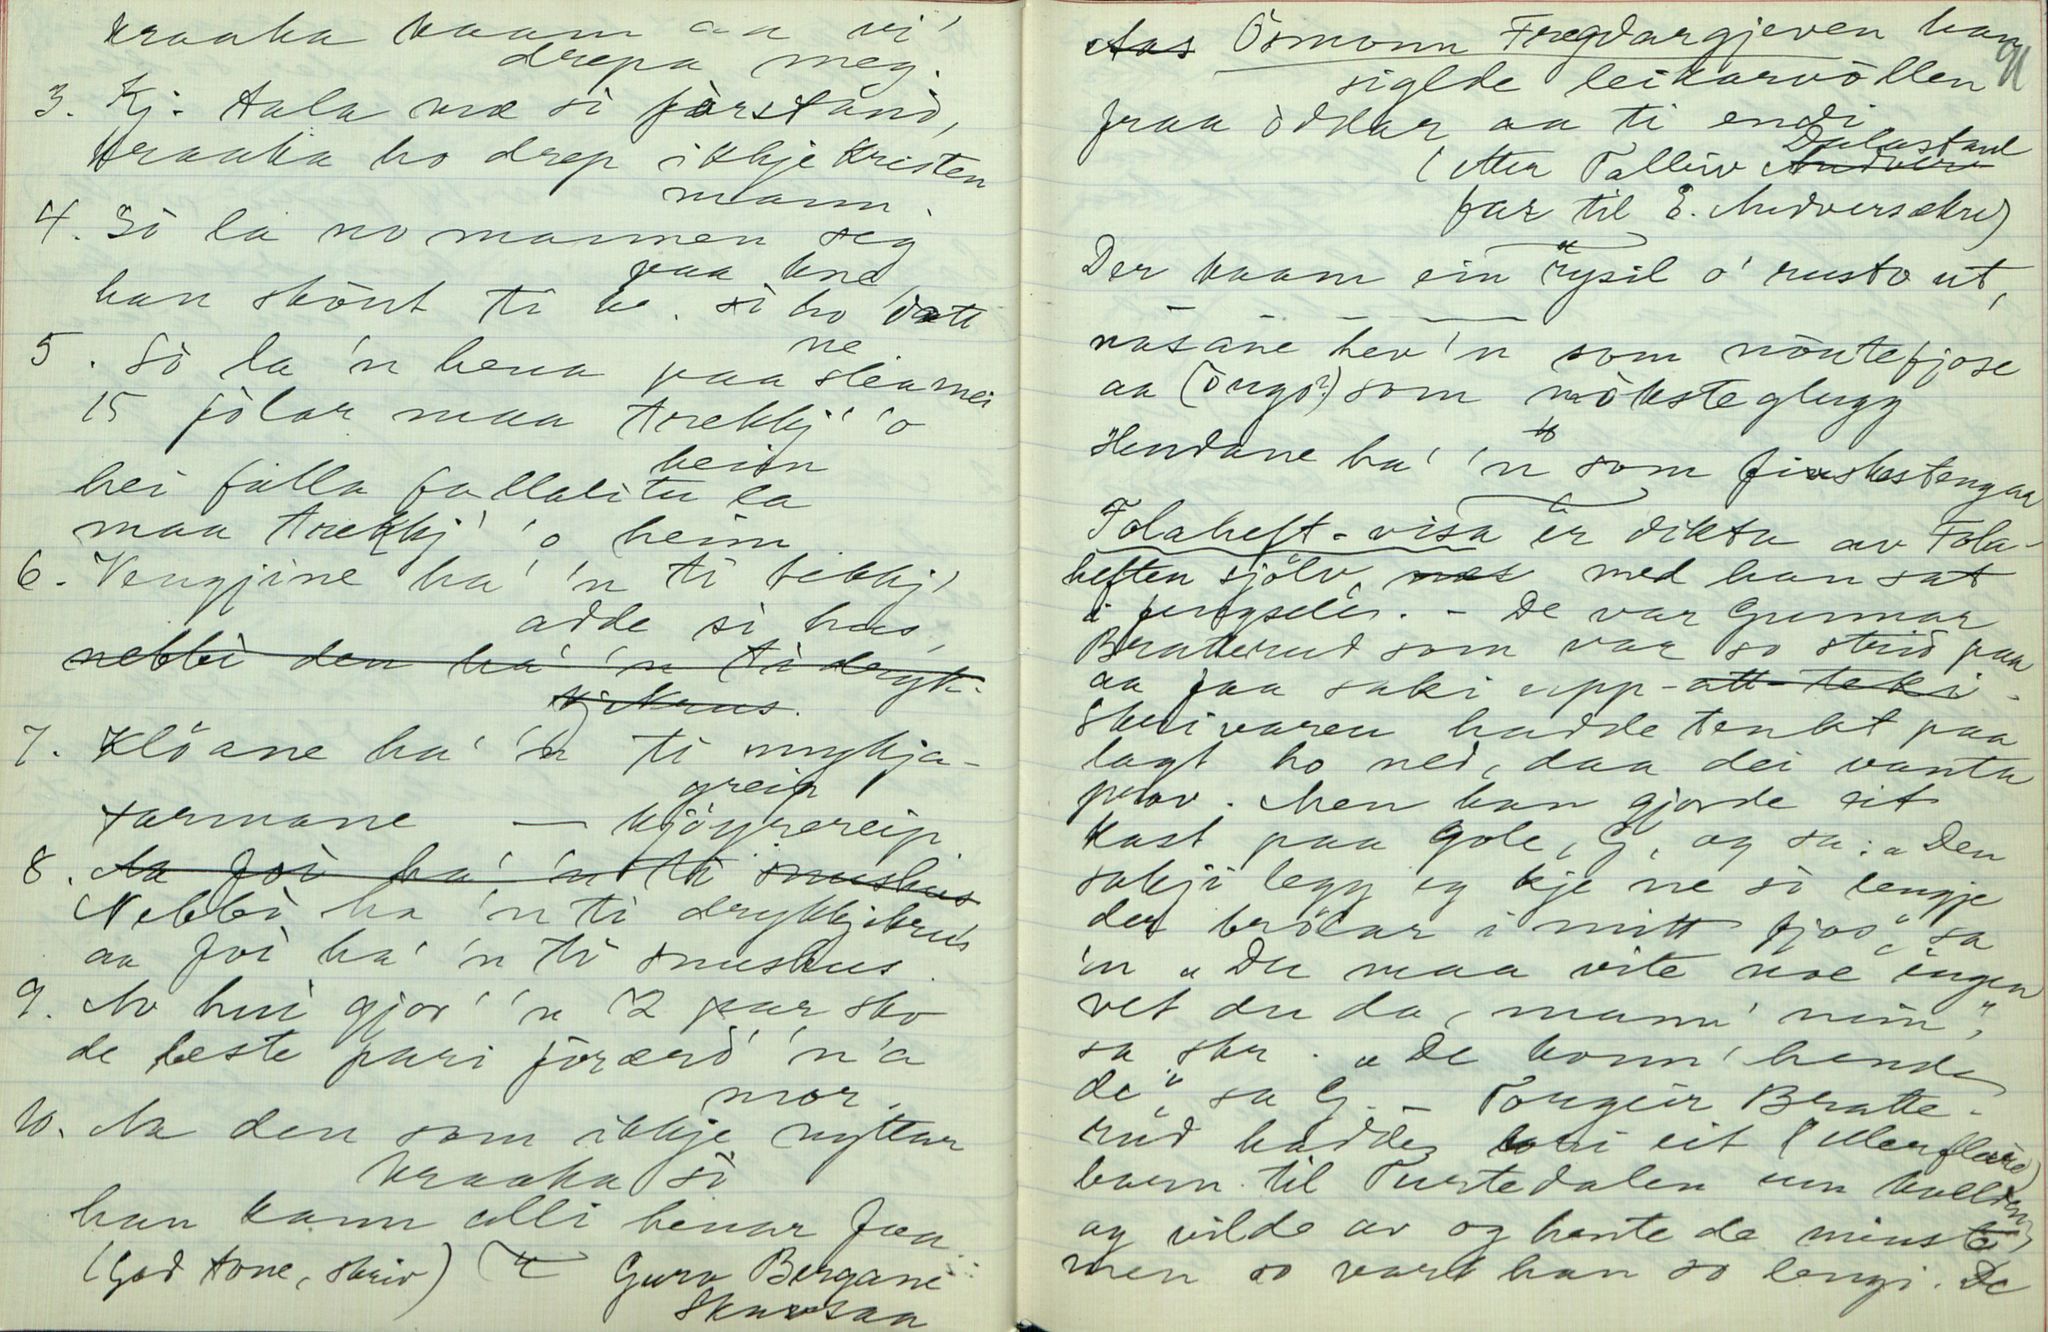 kraaka kaam aa vi'
drepa meg.
3. Kj. tala væ si forstånd,
kraaka ho drep ikkje kristen
mann.
4. Så la no mannen seg
paa kne,
han skönt ti be. så ho datt
ne.
5. Så la 'n hena paa slea mei
15 følar maa trekkj' 'o
heim
hei falla fallalitu la
maa trekkj' 'o heim
6. Vengjine ha' 'n ti tekkj'
adde si hus,
nebbi den ha' 'n ti drykk-
kj krus.
7. Klöane ha' 'n ti mykja-
greip
tarmane — kjöyrereip
8. Aa foi ha' 'n ti snushus
Nebbi ha 'n ti drykkjikrus
aa foi ha' 'n ti snushus.
9. Av hui gjor' 'n 12 par sko
de beste pari förærd' 'n 'a
mor.
10. Aa den som ikkje nyttar
kraaka så
han kann alli henar faa.
(God tone, skriv) Guro Bergane
Skavsaa
Aas Åsmonn Fregdargjeven han
91
siglde leikarvöllen
fraa oddar aa ti endi
Dalastaul
(etter Tallëiv
far til E. Midversækre)
Der kaam ein rysil o' rusto ut,
nåsane hev'n som nöutefjose
aa (öugo?) som möksteglugg
Hendane ha' 'n som
Folaheft-visa er dikta av Fola-
heften sjölv, med han sat
i fengselin. – De var Gunnar
Bratterud som var so strid paa
aa faa saki upp – att-teki –
Skrivaren hadde tenkt paa
lagt ho ned, daa dei vanta
prov. Men han gjorde sit
kast paa gole, G, og sa: "Den
sakji legg eg kje ne så lengje
der brölar i mitt fjos", sa
'n "Du maa vite noe ingen
vet du da, mann' min",
sa skr. "De konn' henda
de", sa G. – Torgeir Bratte-
rud hadde lovi eit (eller fleire)
barn til Turtedalen um kvelden
og vilde av og hente de minste
men so vart han so lengi. De